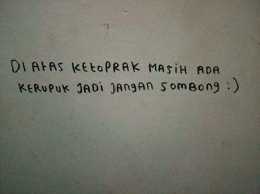 Di ATAS KEtoPRAK MASiH ADA
KERUPUK JADi JANGAN SOMBONG :)